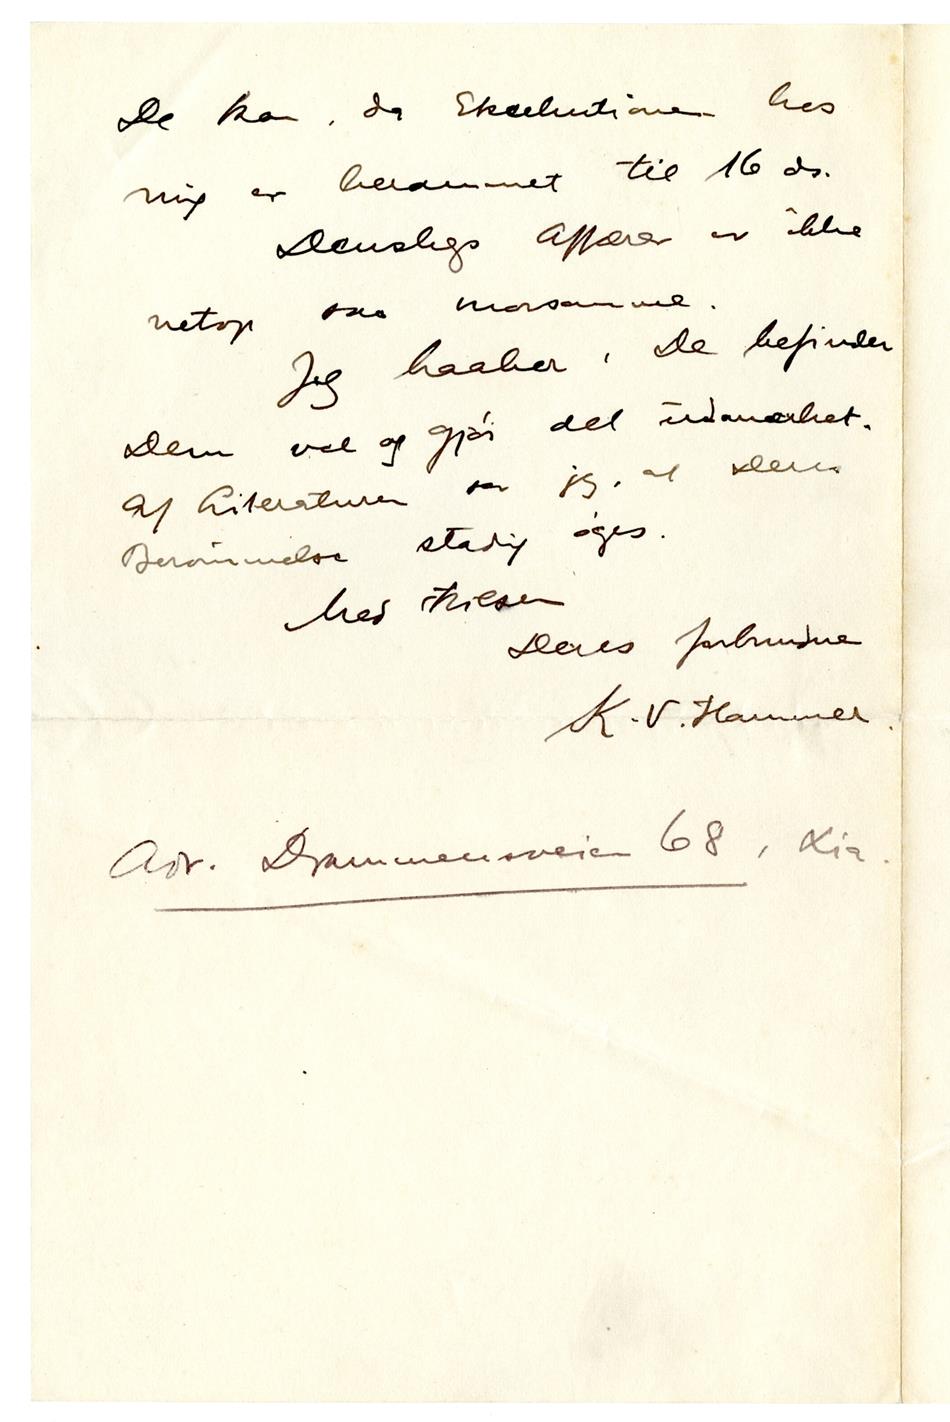 De kan, da Eksekutionen hos
mig er berammet til 16 ds.
Denslags Affærer er ikke
netop saa morsomme.
Jeg haaber, De befinder
Dem vel og gjør det udmærket.
Af Literaturen ser jeg, at Deres
Berømmelse stadig øges.
Med Hilsen
Deres forbundne
K. V. Hammer.
Adr. Drammensveien 68, Kia.